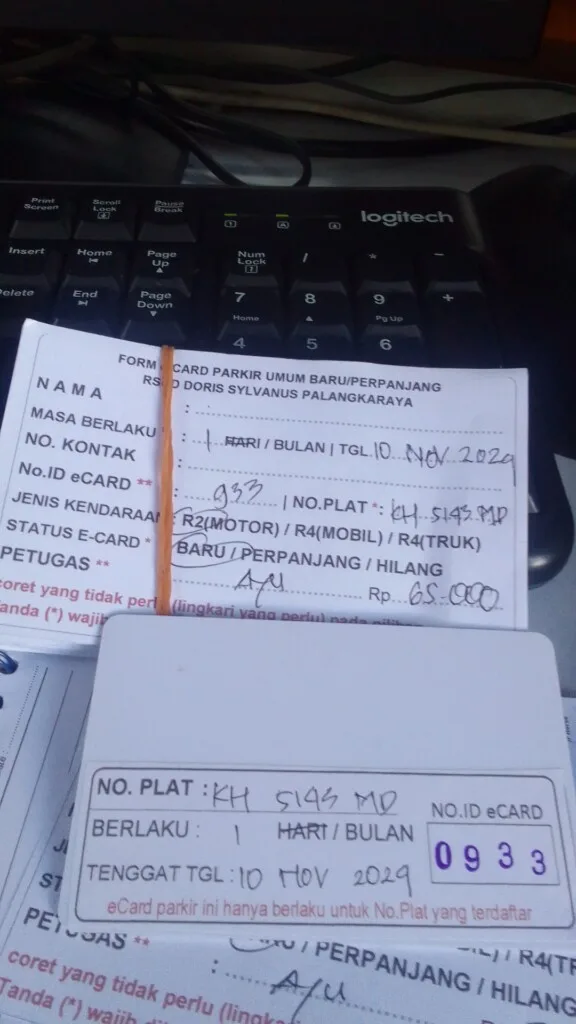 Print Screen
Scroll Lock
Pause Break
logitech
Insert
Home
Page Up
Num Lock
/
*
-
Delete
End
Page Down
7
Home
8
9
Pg Up
+
4
5
6
FORM CARD PARKIR UMUM BARU/PERPANJANG
RS D DORIS SYLVANUS PALANGKARAYA
NAMA :
MASA BERLAKU : 1 HARI / BULAN | TGL. 10 NOV 2029
NO. KONTAK :
No.ID eCARD ** : 933 | NO.PLAT *: KH 5143 MD
JENIS KENDARAAN : R2(MOTOR) / R4(MOBIL) / R4(TRUK)
STATUS E-CARD * BARU / PERPANJANG / HILANG
PETUGAS ** A/U Rp. 65.000
coret yang tidak perl (lingkari yang perlu) pada
Tanda (*) wajib
NO. PLAT : KH 5143 MD
BERLAKU : 1 HARI / BULAN
TENGGAT TGL : 10 NOV 2029
NO.ID eCARD
0933
eCard parkir ini hanya berlaku untuk No.Plat yang terdaftar
ST
PETUGAS **
/ PERPANJANG / HILANG
/ R4(TR
: A/U
coret yang tidak perlu (lingka
Tanda (*) wajib